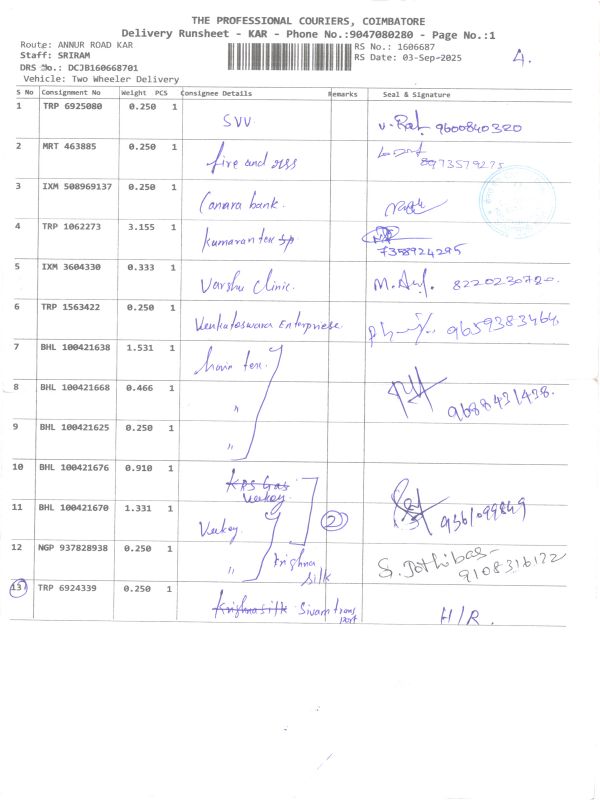 THE PROFESSIONAL COURIERS, COIMBATORE
Delivery Runsheet - KAR - Phone No.:9047080280 - Page No.:1
Route: ANNUR ROAD KAR
RS No.: 1606687
Staff: SRIRAM
RS Date: 03-Sep-2025
4.
DRS No.: DCJB160668701
Vehicle: Two Wheeler Delivery
S No Consignment No Weight PCS Consignee Details Remarks Seal & Signature
1 TRP 6925080 0.250 1 SVV 9600840320
2 MRT 463885 0.250 1 fire and 8973579275
3 IXM 508969137 0.250 1 Canara bank.
4 TRP 1062273 3.155 1 Kumaran tex 7358924295
5 IXM 3604330 0.333 1 Varshu Clinic. 8220230720.
6 TRP 1563422 0.250 1 Venkateswara Enterpriese. 9659383464.
7 BHL 100421638 1.531 1 tex.
8 BHL 100421668 0.466 1 " 9688431438.
9 BHL 100421625 0.250 1 "
10 BHL 100421676 0.910 1 KPS Gas
Veekay.
11 BHL 100421670 1.331 1 Veekay. 2 9361099849
12 NGP 937828938 0.250 1 " Krishna silk S. Jothibas 9108316122
13 TRP 6924339 0.250 1 Krishna silk Sivam transport H/R.